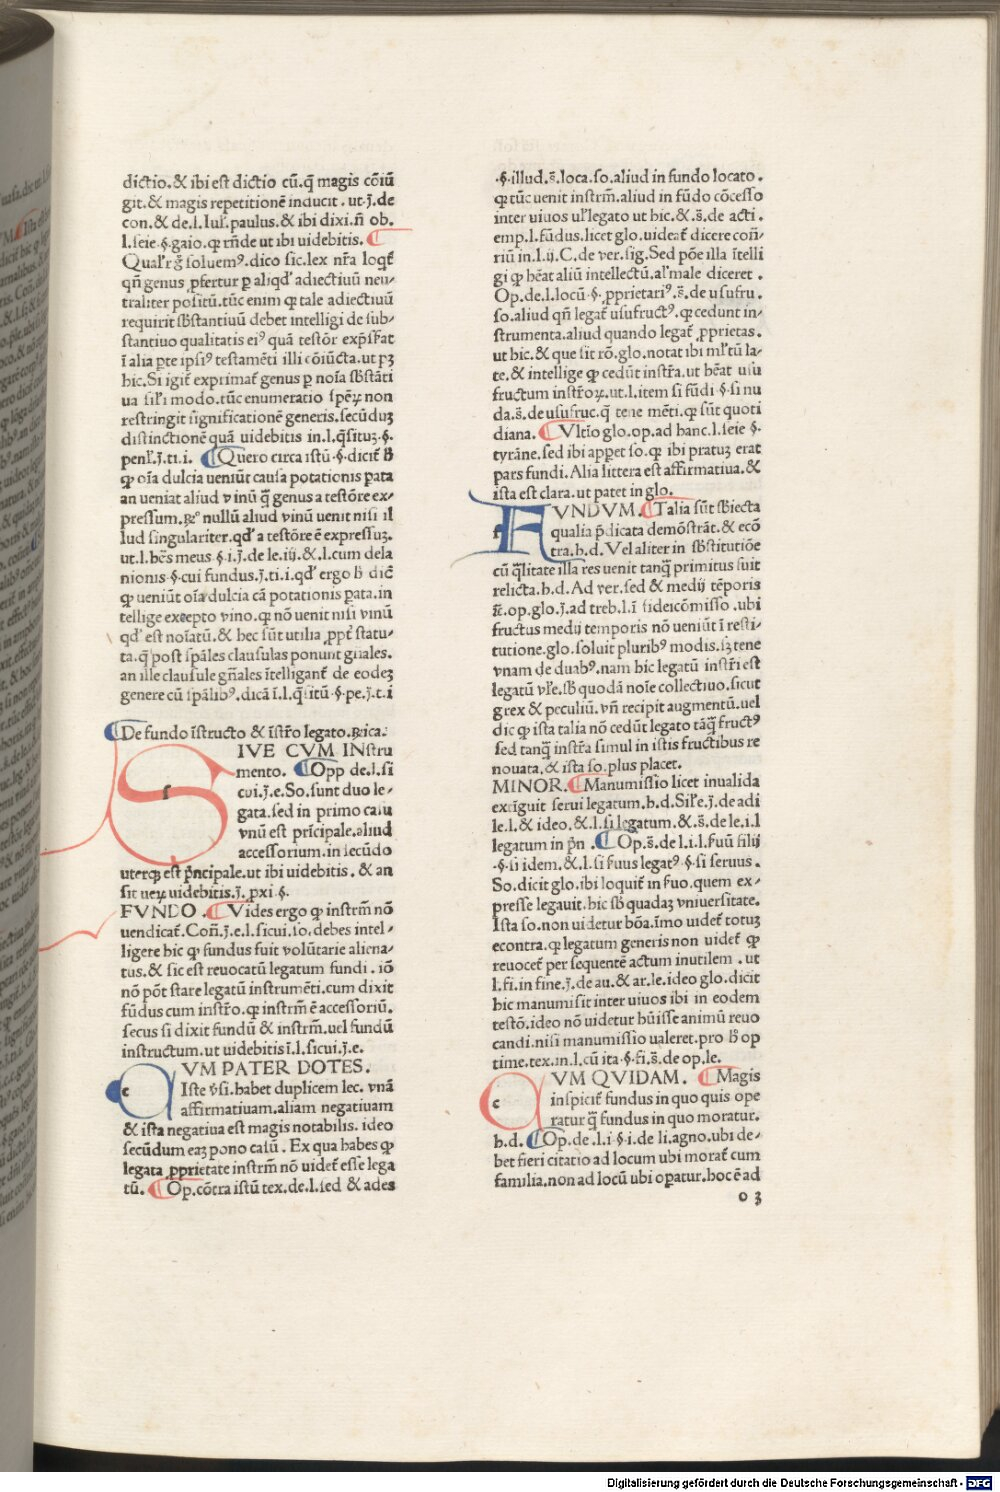 dictio.& ibi est dictio cū.q̄ magis cōiū
git.& magis repetitionē inducit. ut.ȷ̄.de
con.& de.l.Iul'.paulus.& ibi dixi.n̄ ob.
l.seie.§.gaio.qp rn̄de ut ibi uidebitis.
soluemꝰ.dico sic.lex nr̄a loqt̄
qn̄ genus ꝓfertur p aliqd' adiectiuū neu-
traliter positū.tūc enim qp tale adiectiuū
requirit sb̄stantiuū debet intelligi de sub-
stantiuo qualitatis eiꝰ quā testōr exp̄ssat
ī alia ꝑte ipsiꝰ testamēti illi cōiūcta.ut pꝫ
hic.Si igit̄ exprimat̄ genus p noīa sb̄stāti
ua sil'i modo.tūc enumeratio spēꝝ non
restringit significationē generis.secūduꝫ
distinctionē quā uidebitis in.l.q̄situꝫ.§.
penl'.ȷ̄.ti.i. Quero circa istū.§.dicit̄ ꝙ
qp oīa dulcia ueniūt causa potationis ꝑata
an ueniat aliud vinū q̄ genus a testōre ex-
pressum.ꝶꝰ nullū aliud vinū uenit nisi il
lud singulariter.qd' a testōre ē expressuꝫ.
ut.l.bēs meus §.i.ȷ̄.de le.iij.&.l.cum dela
nionis §.cui fundus.ȷ̄.ti.i.qd' ergo ꝙ dic̄
qp ueniūt oīa dulcia cā potationis ꝑata.in
tellige excepto vino.qp nō uenit nisi vinū
qd' est noīatū.& hec sūt utilia ꝓpt̄ statu-
ta.q̄ post sp̄ales clausulas ponunt gn̄ales.
an ille clausule gn̄ales ītelligant̄ de eodeꝫ
genere cū sp̄alibꝰ.dicā ī.l.q̄sitū.§.pe.ȷ̄.t.i
De fundo īstructo & īstr̄o legato.ꝶica.
SIVE CVM INstru
mento. Opp de.l.si
cui.ȷ̄.e.So.sunt duo le-
gata.sed in primo casu
vnū est prīcipale.aliud
accessorium.in secūdo
uterqꝫ est p̄ncipale.ut ibi uidebitis.& an
sit ueꝝ uidebitis.ȷ̄. ꝓxi §.
FVNDO. Vides ergo qp instrm̄ nō
uendicat̄.Con̄.ȷ̄.e.l.sicui.so.debes intel-
ligere hic qp fundus fuit volūtarie aliena-
tus.& sic est reuocatū legatum fundi. iō
nō pōt stare legatū instrumēti.cum dixit
fūdus cum instr̄o.qp instrm̄ ē accessoriū.
secus si dixit fundū & instrm̄.uel fundū
instructum.ut uidebitis ī.l.sicui.ȷ̄.e.
CVM PATER DOTES.
Iste v̄si.habet duplicem lec. vnā
affirmatiuam.aliam negatiuam
& ista negatiua est magis notabilis. ideo
secūdum eaꝫ pono casū. Ex qua habes qp
legata ꝓprietate instrm̄ nō uidet̄ esse lega
tū. Op.cōtra istū tex.de.l.sed & ades
.§.illud.s̄.loca.so.aliud in fundo locato.
qp tūc uenit instrm̄.aliud in fūdo cōcesso
inter uiuos ul' legato ut hic.&.s̄.de acti.
emp.l.fūdus.licet glo.uideat̄ dicere con̄-
riū in.l.ij.C.de ver.sig.Sed pōe illa ītelli
gi qp hēat aliū intellectū.al' male diceret.
Op.de.l.locū.§.ꝓprietariꝰ.s̄.de usufru.
so.aliud qn̄ legat̄ usufructꝰ.qp cedunt in-
strumenta.aliud quando legat̄ ꝓprietas.
ut hic.& que sit rō.glo.notat ibi ml'tū la-
te.& intellige qp cedūt instr̄a.ut hēat usu
fructum instr̄oꝝ.ut.l.item si fūdi.§.si nu
da.s̄.de usufruc.q̄ tene mēti.qp sūt quoti
diana. Vltīo glo.op.ad hanc.l.seie §.
tyrāne.sed ibi appet so.qp ibi pratuꝫ erat
pars fundi.Alia littera est affirmatiua.&
ista est clara.ut patet in glo.
FVNDVM. Talia sūt sb̄iecta
qualia p̄dicata demōstrāt.& ecō
tra.h.d. Vel aliter in sb̄stitutiōe
cū q̄litate illa res uenit tanq̄ primitus fuit
relicta.h.d. Ad ver.sed & medij tēporis
s̄e.op.glo.ȷ̄.ad treb.l.ī fideicōmisso.ubi
fructus medij temporis nō ueniūt ī resti-
tutione.glo.soluit pluribꝰ modis.sꝫ tene
vnam de duabꝰ.nam hic legatū instr̄i est
legatū vl'e.sb̄ quodā noīe collectiuo.sicut
grex & peculiū.vn̄ recipit augmentū.uel
dic qp ista talia nō cedūt legato tāq̄ fructꝰ
sed tanq̄ instr̄a simul in istis fructibus re
nouata.& ista so.plus placet.
MINOR. Manumissio licet inualida
extīguit serui legatum.h.d.Sil'e.ȷ̄.de adi
le.l.& ideo.&.l.si legatum.&.s̄.de le.i.l
legatum in p̄n. Op.s̄.de l.i.l.fuū filij
.§.si idem.&.l.si fuus legatꝰ.§.si seruus.
So.dicit glo.ibi loquit̄ in s̄uo.quem ex-
presse legauit.hic sb̄ quadaꝫ vniuersitate.
Ista so.non uidetur bōa.īmo uidet̄ totuꝫ
econtra.qp legatum generis non uidet̄ qp
reuocet̄ per sequentē actum inutilem. ut
l.fi.in fine.ȷ̄.de au.& ar.le.ideo glo.dicit
hic manumisit inter uiuos ibi in eodem
testō.ideo nō uidetur hūisse animū reuo
candi.nisi manumissio ualeret.pro ꝙ op
time.tex.in.l.cū ita.§.fi.s̄.de op.le.
CVM QVIDAM. Magis
inspicit̄ fundus in quo quis ope
ratur q̄ fundus in quo moratur.
h.d. Op.de.l.i §.i.de li.agno.ubi de-
bet fieri citatio ad locum ubi morat̄ cum
familia.non ad locū ubi opatur.hoc ē ad
o 3
Digitalisierung gefördert durch die Deutsche Forschungsgemeinschaft - DFG